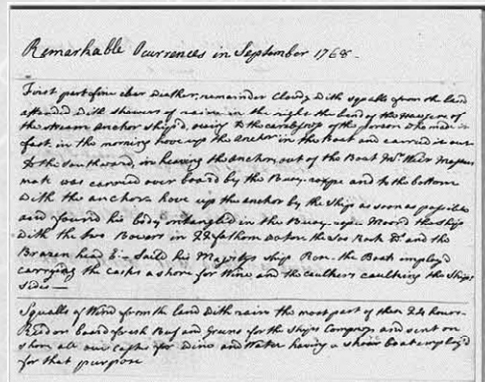 Remarkable Ocurrences in September 1768-
First part fine clear Weather, remainder Cloudy with squalls from the land
attended with showers of rain in the night the bend of the Hawsers of
the stream Anchor slip'd owing to the carelessness of the person who made it
fast, in the morning hove up the Anchor in the Boat and carried it out
to the Southward, in heaving the anchor out of the Boat Mr. Weir Masters
mate was carried over board by the Buoy-rope and to the bottom
with the anchor. hove up the anchor by the Ship as soon as possible
and found his body intangled in the Buoy-rope. Moor'd the Ship
with the two Bowers in 22 fathom water, the Loo Rock W. and the
Brazen head E. Saild his Majestys ship Rose. the Boat imploy'd
carrying the casks a shore for Wine and the caulkers caulking the Ships
sides-
Squalls of Wind from the land with rain the most part of these 24 hours-
Recd on board fresh Beef and Greens for the Ships Company and sent on
shore all our casks for Wine and Water having a shore boat employ'd
for that purpose